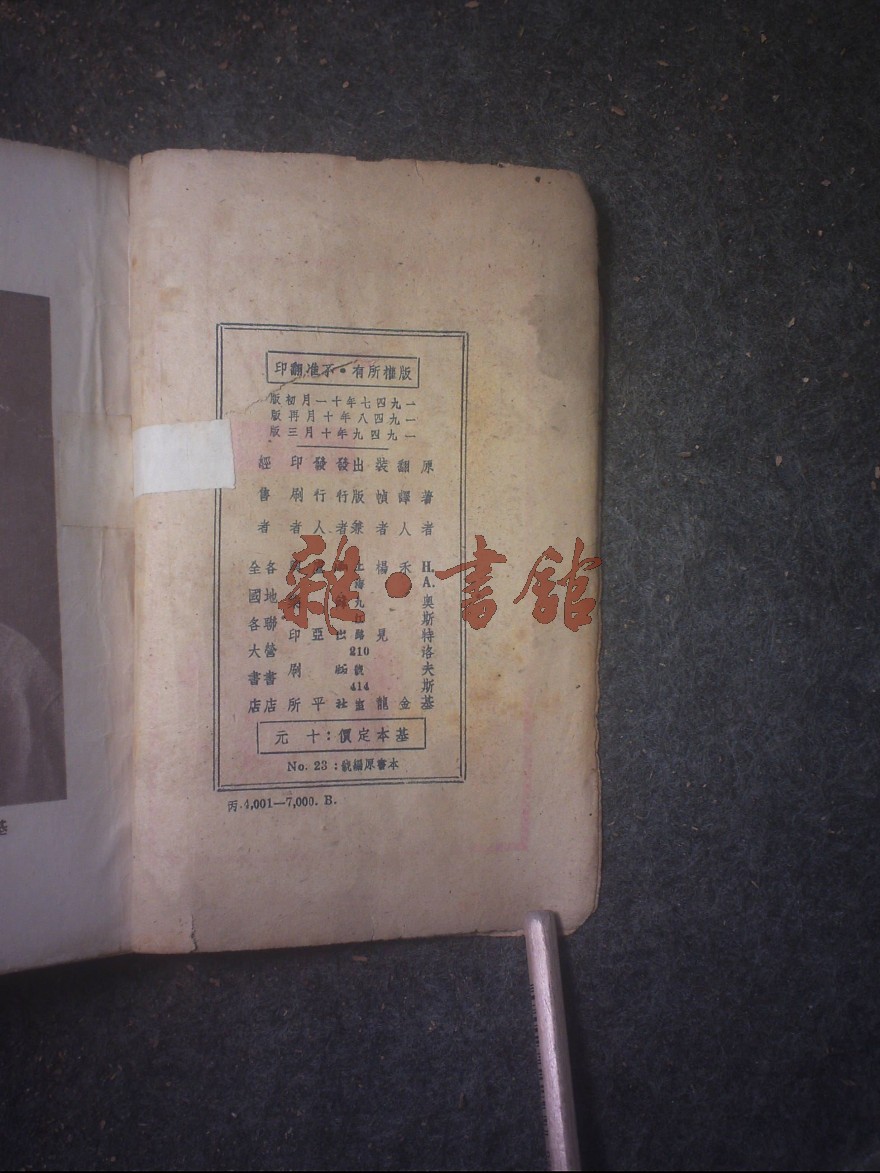 版權所有•不准翻印
一九四七年十一月初版
一九四八年十月再版
一九四九年十月三版
原著者 H. A. 奧斯特洛夫斯基
翻譯人 禾金
裝幀者 楊見龍
出版兼
發行者
210
414
出版社
發行人 亞平
印刷者 印刷所
經售者 各地聯營書店
全國各大書店
基本定價：十元
本書原編號：No. 23
丙.4,001—7,000. B.
雜•書館
基